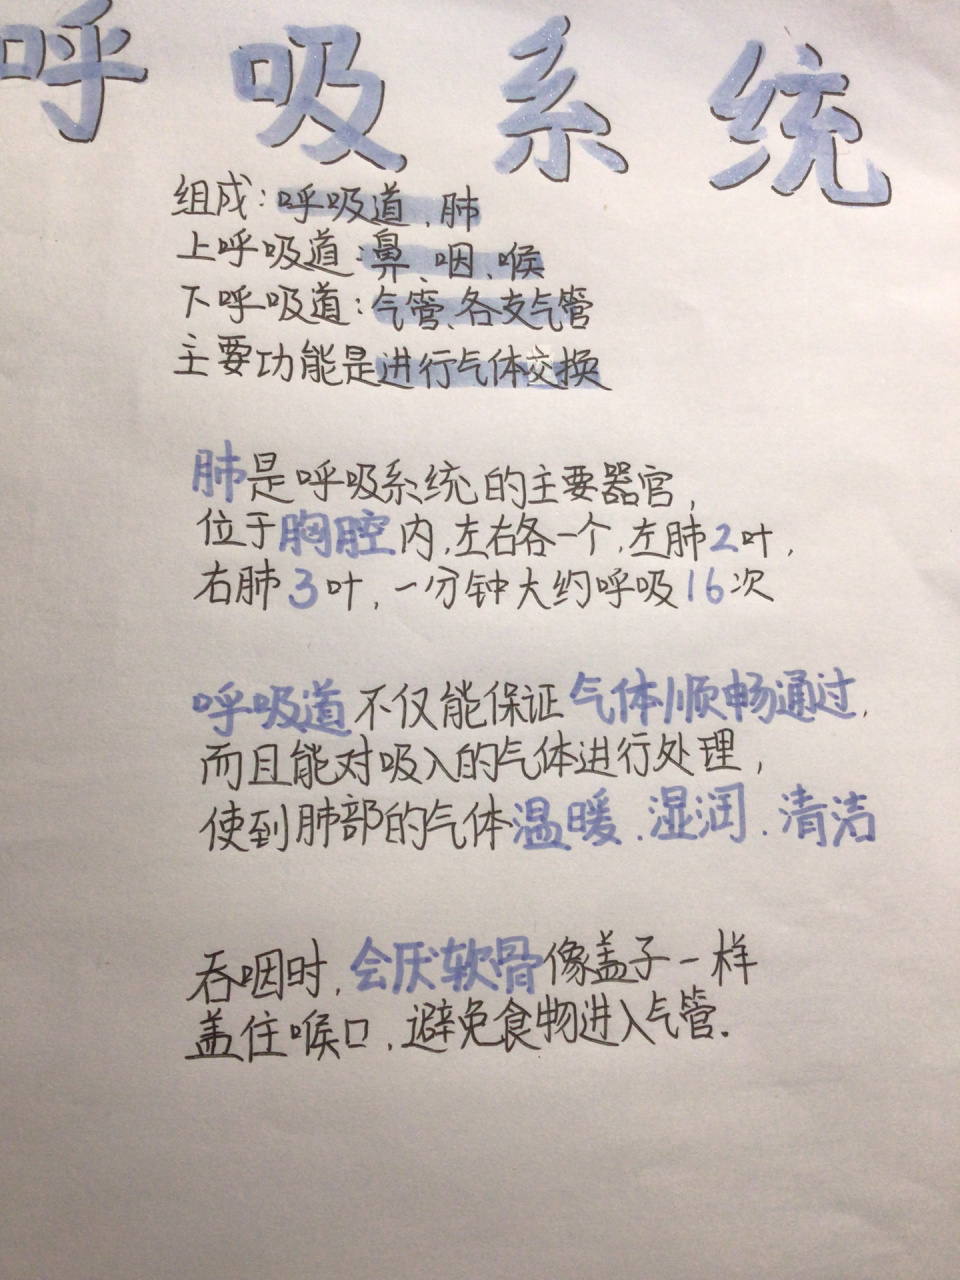 呼吸系统
组成:呼吸道、肺
上呼吸道:鼻、咽、喉
下呼吸道:气管、各支气管
主要功能是进行气体交换
肺是呼吸系统的主要器官,
位于胸腔内,左右各一个,左肺2叶,
右肺3叶,一分钟大约呼吸16次
呼吸道不仅能保证气体顺畅通过,
而且能对吸入的气体进行处理,
使到肺部的气体温暖、湿润、清洁
吞咽时,会厌软骨像盖子一样
盖住喉口,避免食物进入气管.